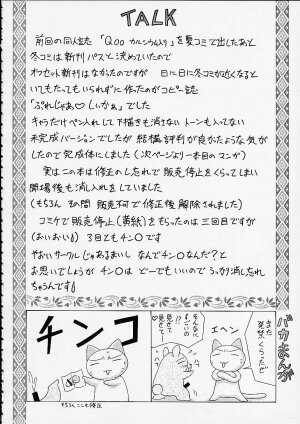 TALK
前回の同人誌「Qoo カルシウム入り」を夏コミで出したあと
冬コミは新刊パスと決めていたので
オフセット新刊はなかったのですが 日に日に冬コミが近くなると
いてもたってもいられずに作ったのがコピー誌
「ぷれじゃあ♡しいかぁ」でした
キャラだけペン入れして下描きも消さないトーンも入ってない
未完成バージョンでしたが 結構評判が良かったような気が
したので完成体にしました(次ページより一本目のマンガ)
実はこの本は修正のし忘れで販売停止をくらってしまい
開場後も消し入れをしていました
(もちろん その間 販売不可で修正後解除されました)
コミケで販売停止(黄紙)をもらったのは三回目ですが
(おいおい) 3回ともチン○です
やおいサークルじゃあるまいし なんでチン○なんだ?と
お思いでしょうが チン○は どーでもいいので うっかり消し忘れ
ちゃうんです
バカまんが
また発禁くらったぜ
エヘン
そんなにすごいの?
見せて見せて♡
チンコ
もちろんここも修正